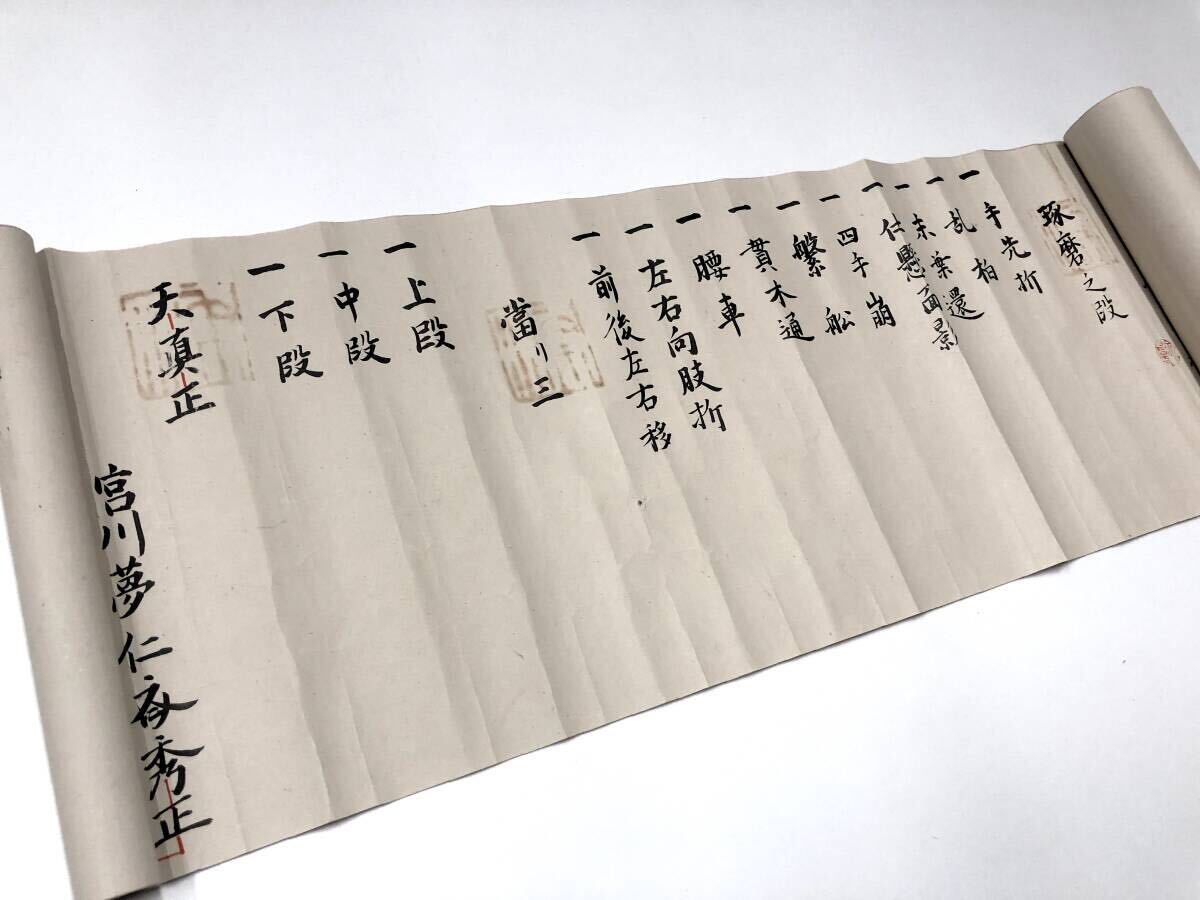 琢磨之段
一手先折
一乱柏
一末葉還
一仕懸面影
一四手崩
一繋舩
一貫木通
一腰車
一左右向肢折
一前後左右移
當リ三
一上段
一中段
一下段
天真正
宮川夢仁斎秀正